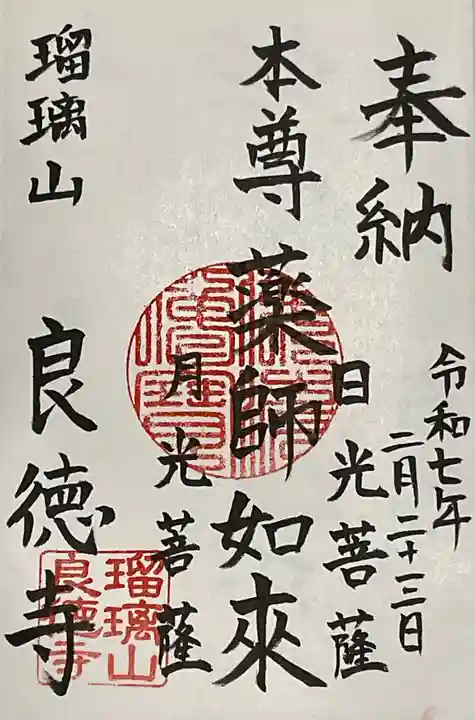 奉納
令和七年
二月二十三日
日光菩薩
本尊 薬師如來
月光菩薩
瑠璃山 良徳寺
瑠璃山
良徳寺